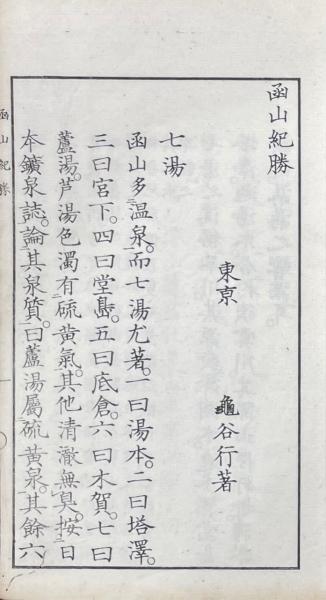 函山紀勝
東京　　龜谷行著
七湯
函山多温泉。而七湯尤著。一曰湯本。二曰塔澤。
三曰宮下。四曰堂島。五曰底倉。六曰木賀。七曰
蘆湯。芦湯色濁有硫黄氣。其他清澈無臭。按日
本鑛泉誌。論其泉質。曰蘆湯屬硫黄泉。其餘六
函山紀勝